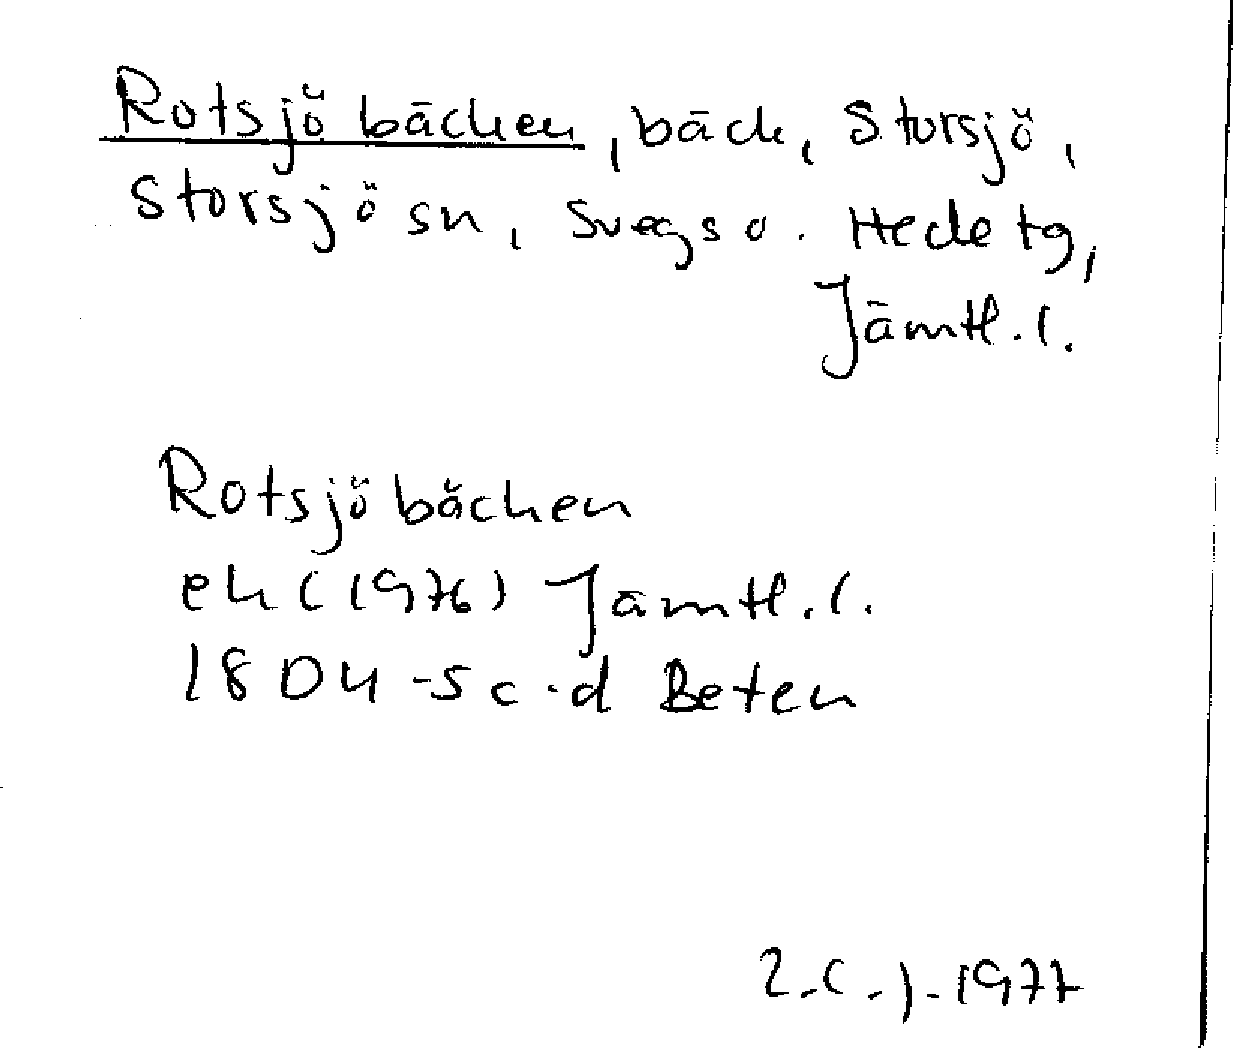 Rotsjöbäcken, bäck, Storsjö,
Storsjö sn, Svegs o. Hede tg,
Jämtl. l.
Rotsjöbäcken
ek (1976) Jämtl. l.
18D4-5 c.d Beten
1977